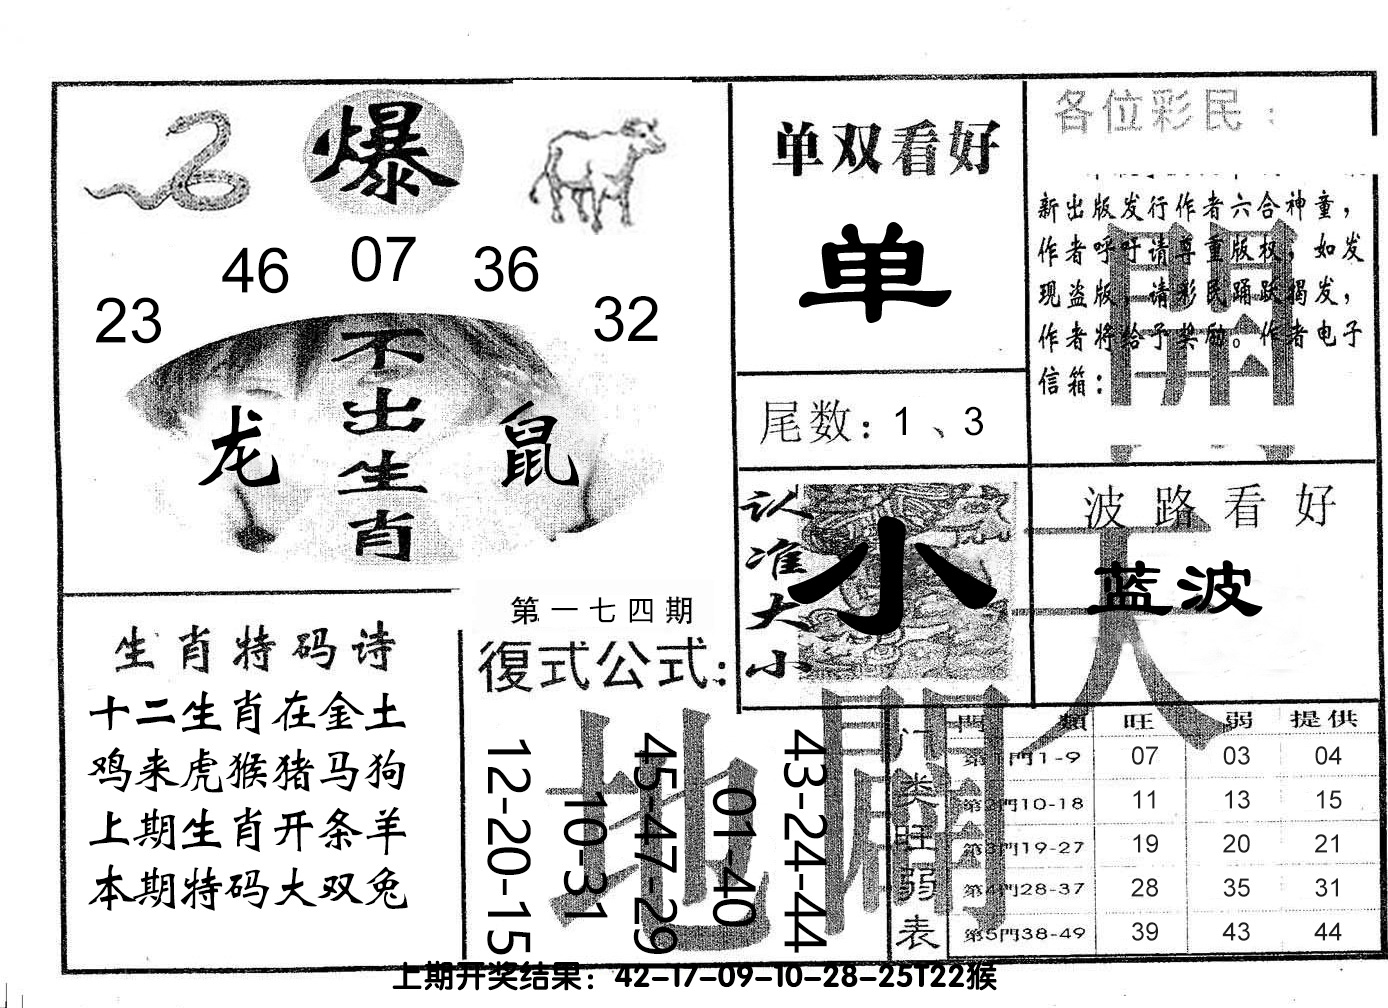 爆
23 46 07 36 32
不出生肖
龙 鼠
单双看好
单
尾数：1、3
各位彩民：
新出版发行作者六合神童，
作者呼吁请尊重版权，如发
现盗版，请彩民踊跃揭发，
作者将给予奖励。作者电子
信箱：
認准大小
小
波路看好
蓝波
生肖特码诗
十二生肖在金土
鸡来虎猴猪马狗
上期生肖开条羊
本期特码大双兔
第一七四期
復式公式：
12-20-15
10-31
45-47-29
01-40
43-24-44
天
開
地
闢
门类旺弱表
門類 旺 弱 提供
第1門1-9 07 03 04
第2門10-18 11 13 15
第3門19-27 19 20 21
第4門28-37 28 35 31
第5門38-49 39 43 44
上期开奖结果：42-17-09-10-28-25T22猴